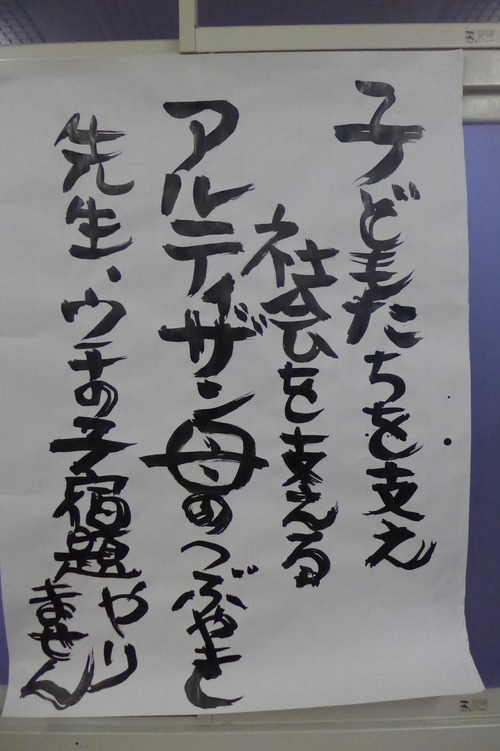 子どもたちを支え
社会を支える
アルティザン母のつぶやき
先生、ウチの子宿題やり
ません